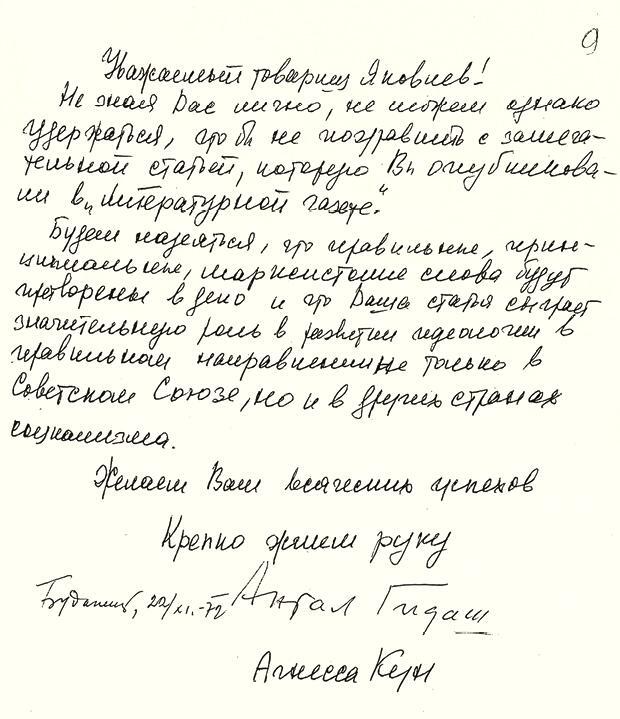 9
Уважаемый товарищ Яковлев!
Не зная Вас лично, не можем однако
удержаться, что бы не поздравить с замеча-
тельной статьей, которую Вы опубликова-
ли в „Литературной газете“.
Будем надеяться, что правильные, прин-
ципиальные, марксистские слова будут
претворены в дело и что Ваша статья сыграет
значительную роль в развитии идеологии в
правильном направлении не только в
Советском Союзе, но и в других странах
социализма.
Желаем Вам всяческих успехов
Крепко жмем руку
Будапешт, 22/XI.-72 Антал Гидаш
Агнесса Кун